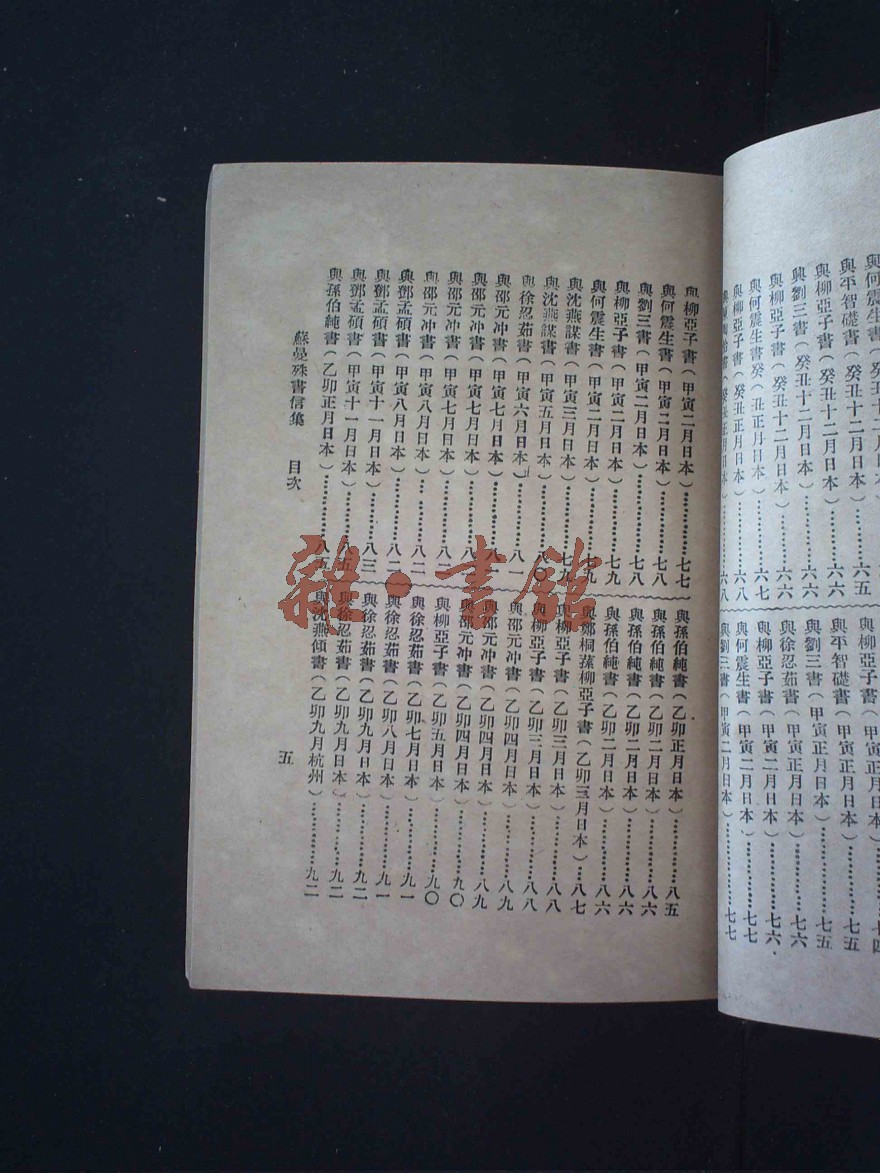 與何震生書(癸丑十二月日本
與平智礎書(癸丑十二月日本)………六五
與柳亞子書(癸丑十二月日本)………六六
與劉三書(癸丑十二月日本)………六六
與柳亞子書(癸丑十二月日本)………六六
與何震生書癸(丑正月日本)………六七
與柳亞子書(癸丑正月日本)………六八
書(癸丑正月日本)………六八
與柳亞子書(甲寅正月日本)………七四
與平智礎書(甲寅正月日本)………七五
與劉三書(甲寅正月日本)………七五
與徐忍茹書(甲寅正月日本)………七六
與柳亞子書(甲寅二月日本)………七六
與何震生書(甲寅二月日本)………七七
與劉三書(甲寅二月日本)………七七
與柳亞子書(甲寅二月日本)………七七
與何震生書(甲寅二月日本)………七八
與劉三書(甲寅二月日本)………七八
與柳亞子書(甲寅二月日本)………七九
與何震生書(甲寅二月日本)………七九
與沈燕謀書(甲寅三月日本)………七九
與沈燕謀書(甲寅五月日本)………八〇
與徐忍茹書(甲寅六月日本)………八一
與邵元冲書(甲寅七月日本)………八一
與邵元冲書(甲寅七月日本)………八二
與邵元冲書(甲寅七月日本)………八二
與邵元冲書(甲寅八月日本)………八二
與鄧孟碩書(甲寅八月日本)………八二
與鄧孟碩書(甲寅十一月日本)………八三
與鄧孟碩書(甲寅十一月日本)………八五
與孫伯純書(乙卯正月日本)………八五
與孫伯純書(乙卯正月日本)………八五
與孫伯純書(乙卯二月日本)………八六
與孫伯純書(乙卯二月日本)………八六
與孫伯純書(乙卯二月日本)………八六
與鄭桐蓀柳亞子書(乙卯三月日本)………八七
與柳亞子書(乙卯三月日本)………八八
與柳亞子書(乙卯三月日本)………八八
與邵元冲書(乙卯四月日本)………八九
與邵元冲書(乙卯四月日本)………八九
與邵元冲書(乙卯四月日本)………九〇
與柳亞子書(乙卯五月日本)………九〇
與徐忍茹書(乙卯七月日本)………九一
與徐忍茹書(乙卯八月日本)………九一
與徐忍茹書(乙卯九月日本)………九二
與徐忍茹書(乙卯九月日本)………九二
與沈燕傾書(乙卯九月杭州)………九二
蘇曼殊書信集 目次
五
雜·書館